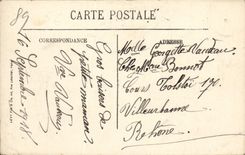 CARTE POSTALE
CORRESPONDANCE
ADRESSE
89
16 Septembre 1918
Gros baisers de
petite maman
Vve
Melle Georgette
Chez Mme Bonnot
Cours Tolstoï 170
Villeurbanne
Rhône